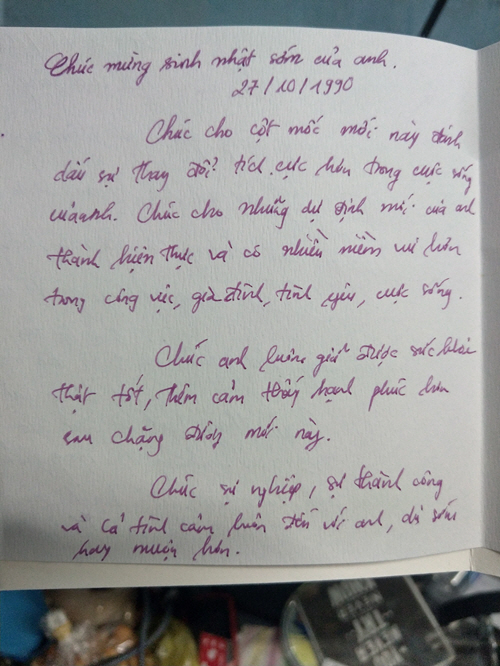 Chúc mừng sinh nhật sớm của anh.
27/10/1990
Chúc cho cột mốc mới này đánh
dấu sự thay đổi tích cực hơn trong cuộc sống
của anh. Chúc cho những dự định mới của anh
thành hiện thực và có nhiều niềm vui hơn
trong công việc, gia đình, tình yêu, cuộc sống.
Chúc anh luôn giữ được sức khỏe
thật tốt, thêm cảm thấy hạnh phúc hơn
sau chặng đường mới này.
Chúc sự nghiệp, sự thành công
và cả tình cảm luôn đến với anh, dù sớm
hay muộn hơn.